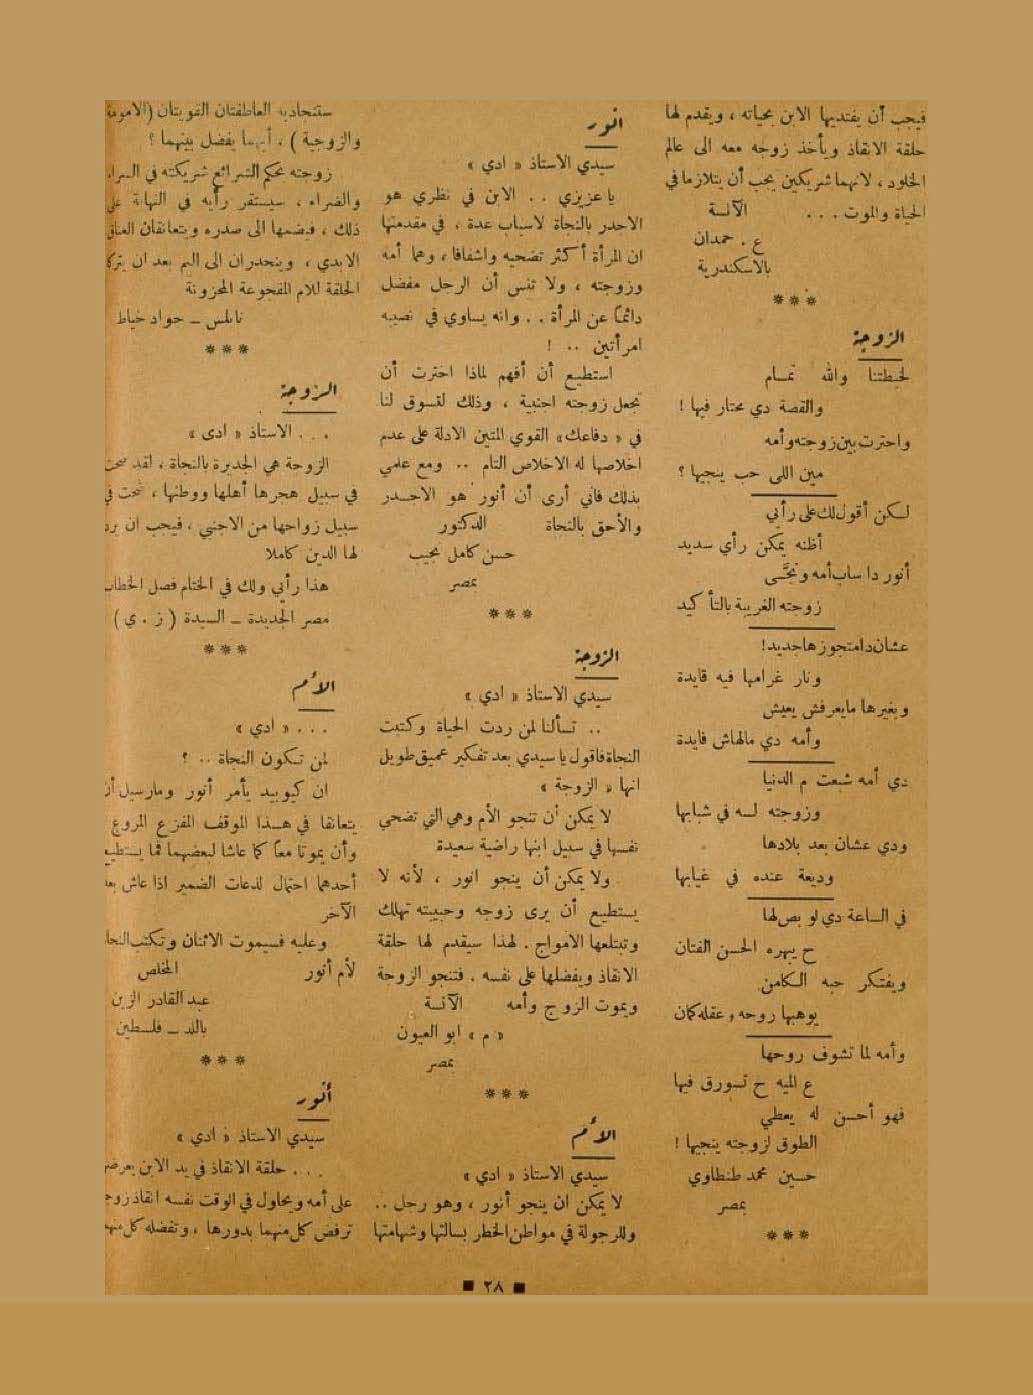 فيجب أن يفتديها الابن بحياته ، ويقدم لها
حلقة الانقاذ ويأخذ زوجه معه الى عالم
الخلود ، لانهما شريكين يجب أن يتلازما في
الحياة والموت . . . الآنسة
ع . حمدان
بالاسكندرية
* * *
الزوجة
لخبطتنا والله تمام
والقصة دي محتار فيها !
واحترت بين زوجته وأمه
مين اللى حب ينجيها ؟
لكن أقول لك على رأيي
أظنه يمكن رأي سديد
أنور دا ساب أمه ونجَّى
زوجته الغريبة بالتأكيد
عشان دا متجوزها جديد !
ونار غرامها فيه قايدة
وبغيرها مايعرفش يعيش
وأمه دي مالهاش فايدة
دي أمه شبعت م الدنيا
وزوجته لسه في شبابها
ودي عشان بعد بلادها
وديعة عنده في غيابها
في الساعة دي لو بص لها
ح يبهره الحسن الفتان
ويفتكر حبه الكامن
يوهبها روحه وعقله كمان
وأمه لما تشوف روحها
ع الميه ح تسورق فيها
فهو أحسن له يعطي
الطوق لزوجته ينجيها !
حسين محمد طنطاوي
بمصر
* * *
أنور
سيدي الاستاذ « ادي »
ياعزيزي . . الابن في نظري هو
الاجدر بالنجاة لاسباب عدة ، في مقدمتها
ان المرأة أكثر تضحيه واشفاقا ، وهما أمه
وزوجته ، ولا تنس أن الرجل مفضل
دائماً عن المرأة . . وانه يساوي في نصيبه
امرأتين . . !
استطيع أن أفهم لماذا اخترت أن
تجعل زوجته اجنبية ، وذلك لتسوق لنا
في « دفاعك » القوي المتين الادلة على عدم
اخلاصها له الاخلاص التام . . ومع علمي
بذلك فاني أرى أن أنور هو الاجدر
والأحق بالنجاة الدكتور
حسن كامل نجيب
بمصر
* * *
الزوجة
سيدي الاستاذ « ادي »
. . تسألنا لمن ردت الحياة وكتبت
النجاة فاقول ياسيدي بعد تفكير عميق طويل
انها « الزوجة »
لا يمكن أن تنجو الأم وهي التي تضحي
نفسها في سبيل ابنها راضية سعيدة
ولا يمكن أن ينجو انور ، لأنه لا
يستطيع أن يرى زوجه وحبيبته تهلك
وتبتلعها الامواج . لهذا سيقدم لها حلقة
الانقاذ ويفضلها على نفسه . فتنجو الزوجة
ويموت الزوج وأمه الآنسة
« م » ابو العيون
بمصر
* * *
الأم
سيدي الاستاذ « ادي »
لا يمكن ان ينجو أنور ، وهو رجل . .
وللرجولة في مواطن الخطر بسالتها وشهامتها
ستتجاذبه العاطفتان القويتان ( الامومة
والزوجية ) ، أيهما يفضل بينهما ؟
زوجته بحكم الشرائع شريكته في السراء
والضراء ، سيستقر رأيه في النهاية على
ذلك ، فيضمها الى صدره ويتعانقان العناق
الابدي ، وينحدران الى اليم بعد ان يتركا
الحلقة للام المفجوعة المحزونة
نابلس - جواد خياط
* * *
الزوجة
. . . الاستاذ « ادى »
الزوجة هي الجديرة بالنجاة ، لقد ضحت
في سبيل هجرها أهلها ووطنها ، ضحت في
سبيل زواجها من الاجنبي ، فيجب ان يرد
لها الدين كاملا
هذا رأيي ولك في الختام فصل الخطاب
مصر الجديدة - السيدة ( ز . ي )
* * *
الأم
. . . « ادي »
لمن تكون النجاة . . ؟
ان كيوبيد يأمر أنور ومارسيل أن
يتعانقا في هذا الموقف المفزع المروع
وأن يموتا معاً كما عاشا لبعضهما فما يستطيع
أحدهما احتمال لذعات الضمير اذا عاش بعد
الآخر
وعليه فسيموت الاثنان وتكتب النجاة
لأم أنور المخلص
عبد القادر الزين
باللد - فلسطين
* * *
أنور
سيدي الاستاذ « ادي »
. . . حلقة الانقاذ في يد الابن يعرضها
على أمه ويحاول في الوقت نفسه انقاذ زوجه
ترفض كل منهما بدورها ، وتفضله كل منهما
٢٨